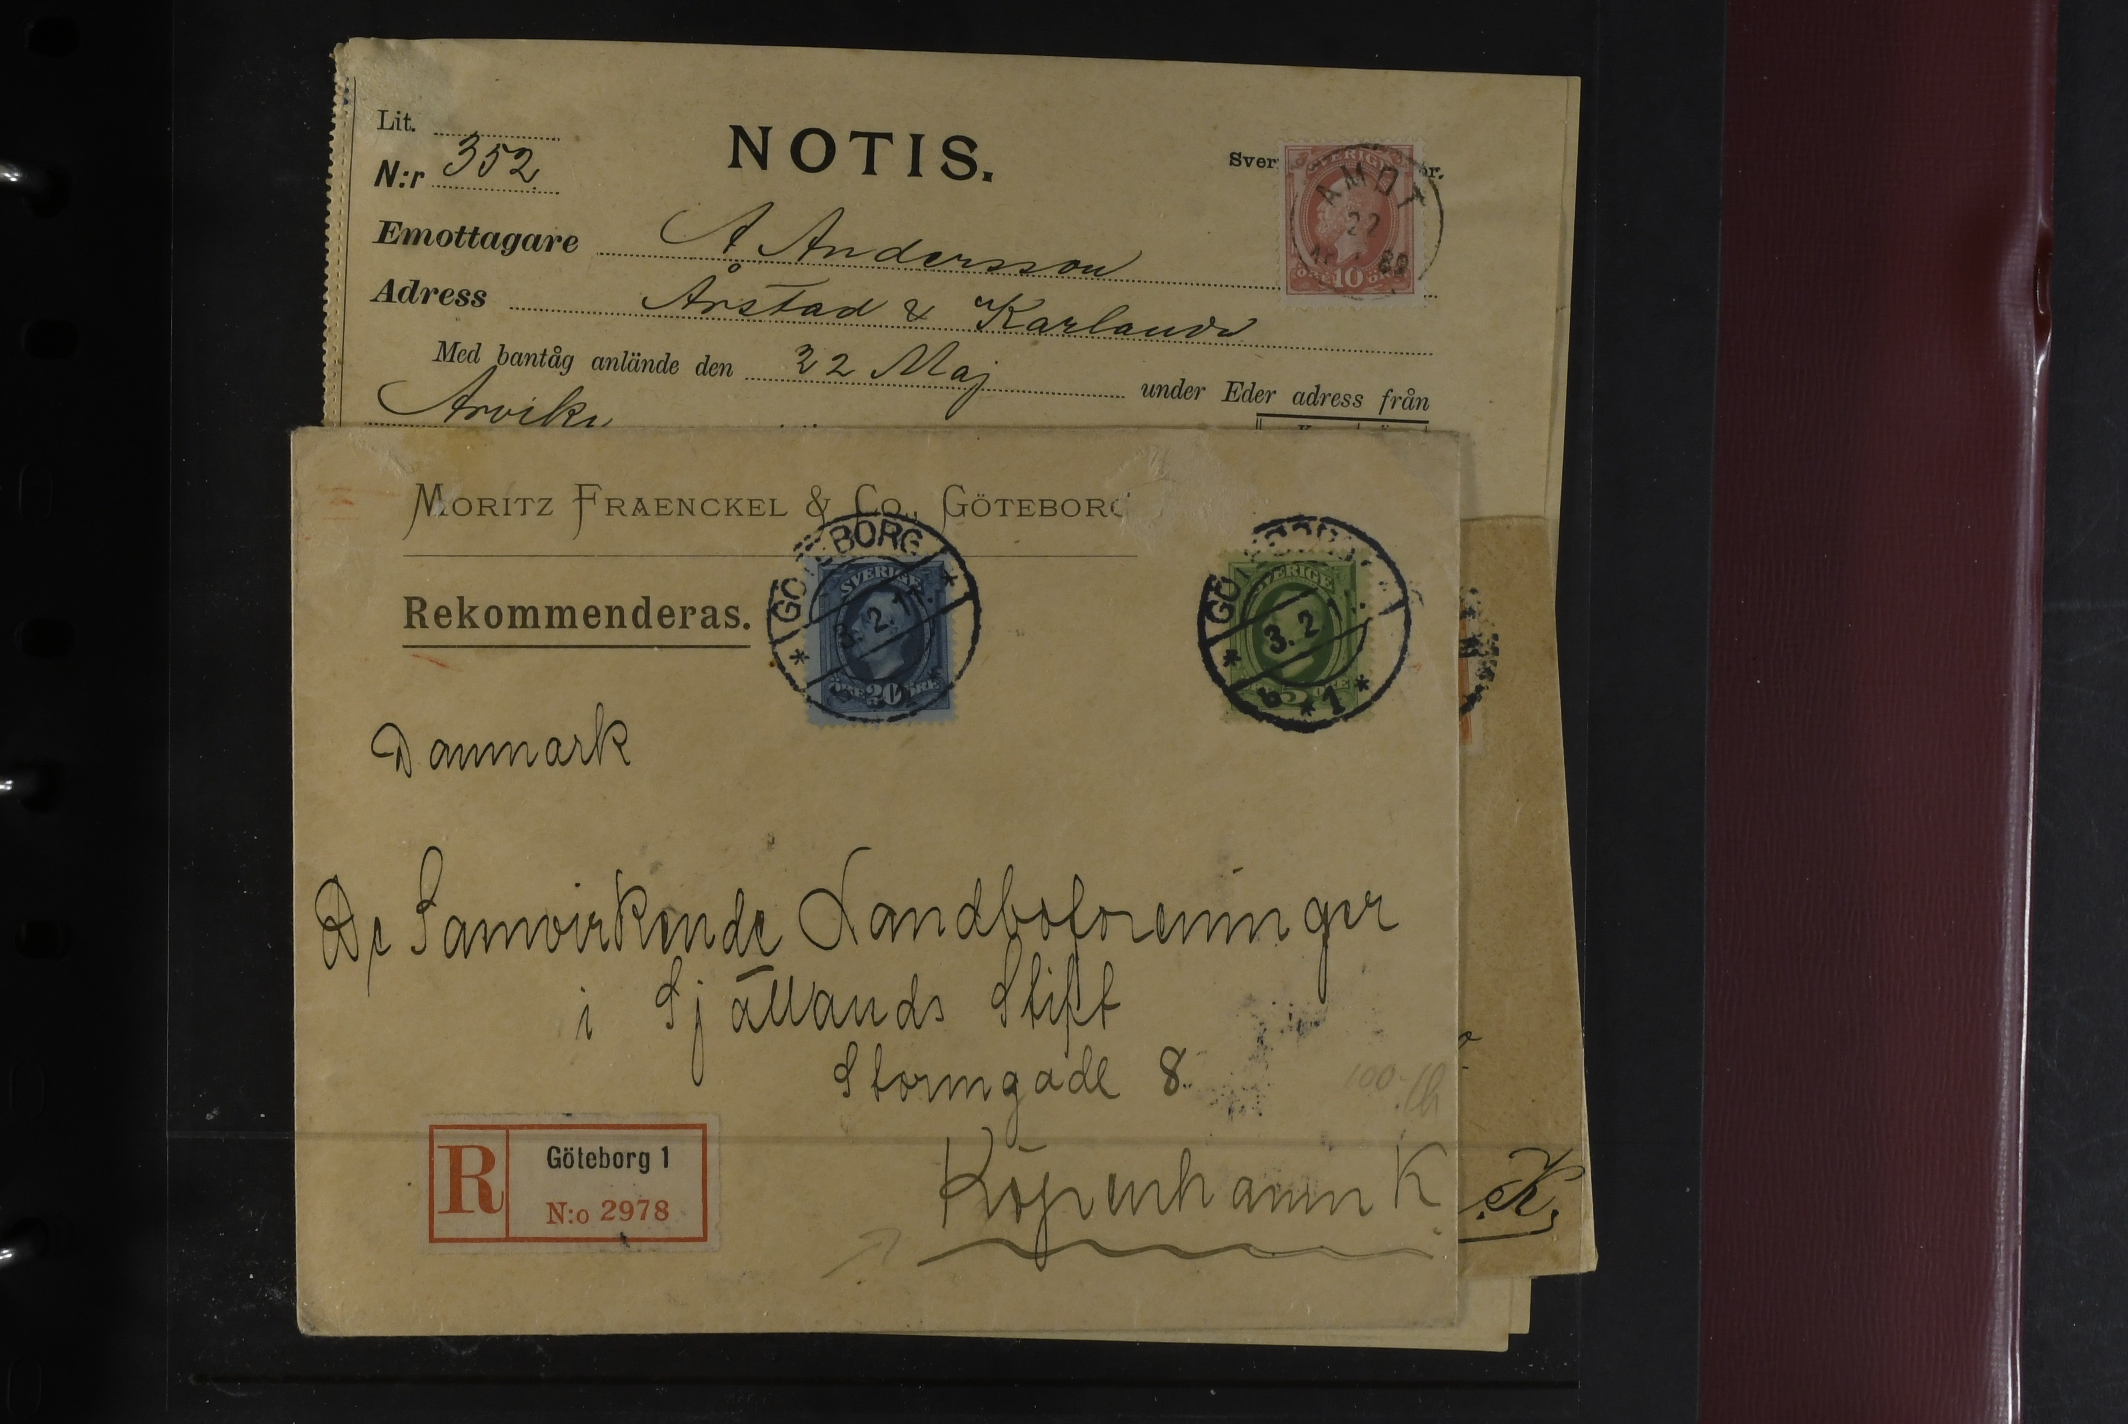 Lit.
NOTIS.
N:r 352
Sver
or.
SVERIGE
ÅMOT
22
89
ÖRE 10 ÖRE
Emottagare A Andersson
Adress Årstad & Karlanda
Med bantåg anlände den 22 Maj under Eder adress från
Arvika
MORITZ FRAENCKEL & CO., GÖTEBORG
GÖTEBORG
SVERIGE
3. 2. 11.
ÖRE 20 ÖRE
GÖTEBORG
SVERIGE
3. 2
5 ÖRE
1
Rekommenderas.
Danmark
De Samvirkende Landboforeninger
i Själlands Stift
Stormgade 8
100.-
R Göteborg 1
N:o 2978
Köpenhamn K.
K.